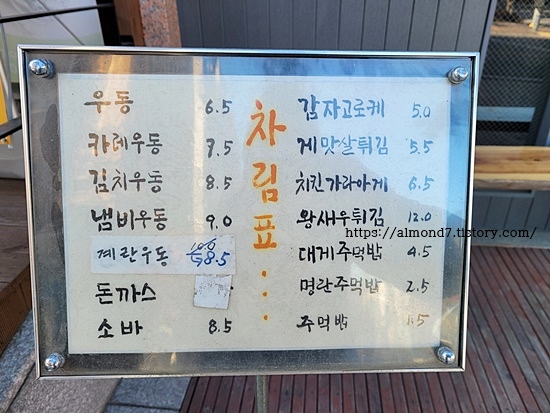 차림표
우동 6.5
카레우동 7.5
김치우동 8.5
냄비우동 9.0
계란우동 8.5
돈까스
소바 8.5
감자고로케 5.0
게맛살튀김 5.5
치킨가라아게 6.5
왕새우튀김 12.0
https://almond7.tistory.com/
대게주먹밥 4.5
명란주먹밥 2.5
주먹밥